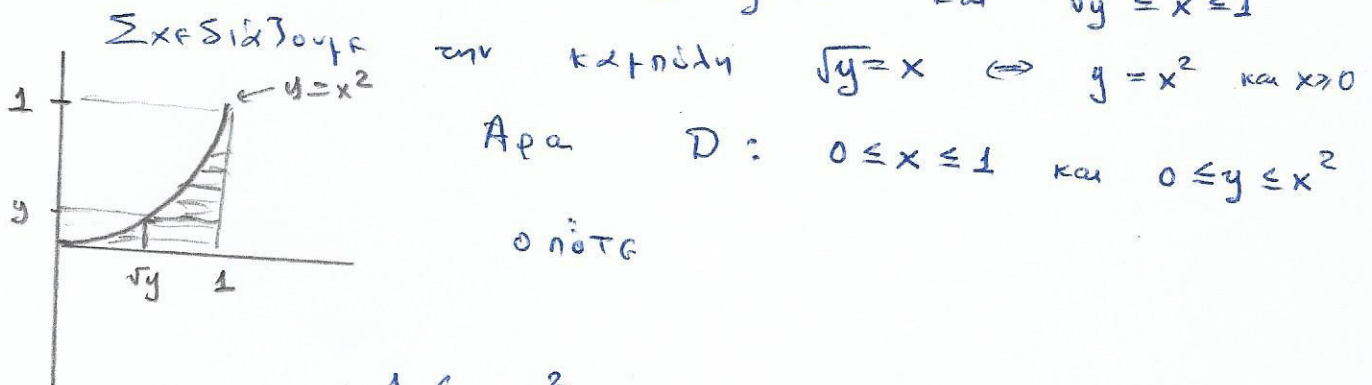 √y ≤ x ≤ 1
Σχεδιάζουμε την καμπύλη √y = x ⇔ y = x² και x ≥ 0
1
← y = x²
Άρα D : 0 ≤ x ≤ 1 και 0 ≤ y ≤ x²
y
οπότε
√y 1